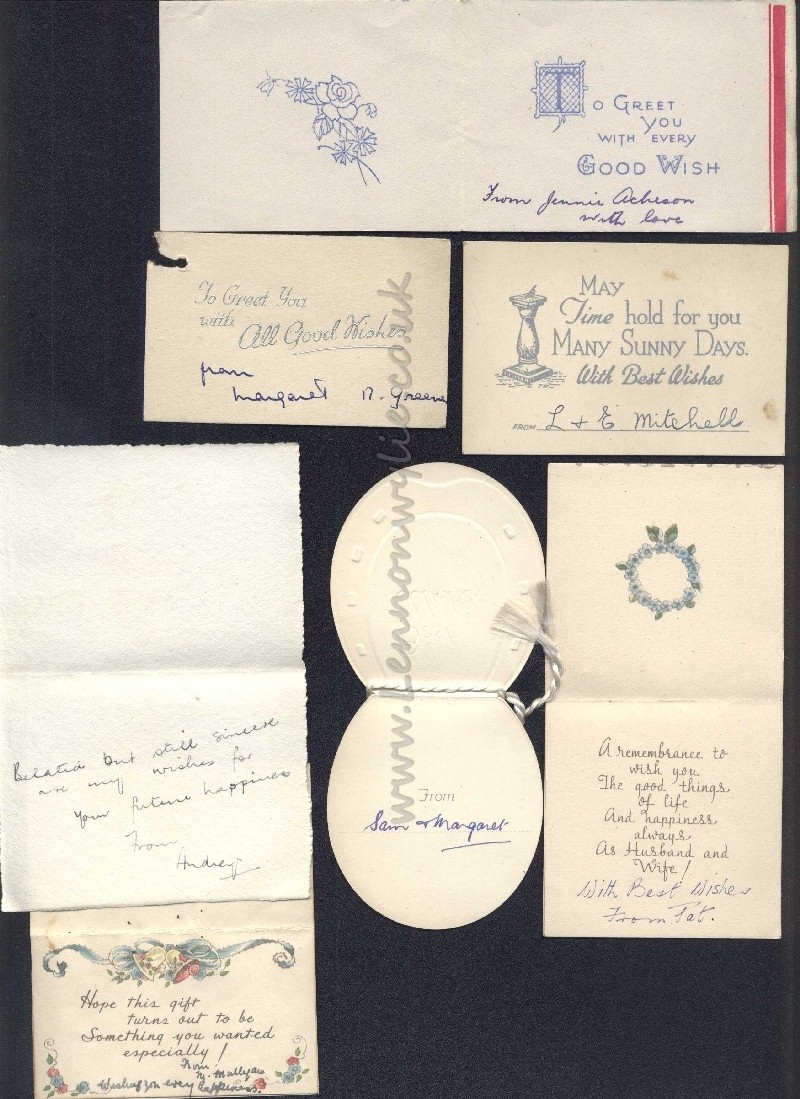 To Greet
you
with every
Good Wish
From Jennie Acheson
with love
To Greet You
with
All Good Wishes
from
Margaret R. Greene
May
Time hold for you
Many Sunny Days.
With Best Wishes
From L & E Mitchell
www.Lennonwylie.co.uk
Belated but still sincere
are my wishes for
your future happiness
From
Audrey
From
Sam & Margaret
A remembrance to
wish you
The good things
of life
And happiness
always
As Husband and
Wife!
With Best Wishes
From Pat.
Hope this gift
turns out to be
Something you wanted
especially!
From
M. Mullgan
Wishing you every happiness.